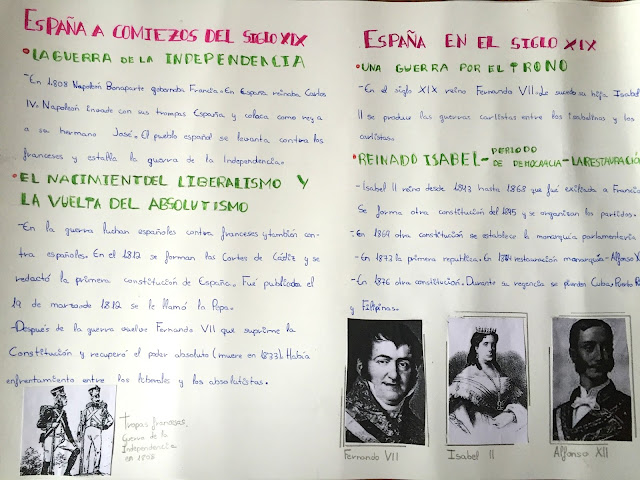 ESPAÑA A COMIEZOS DEL SIGLO XIX
• LA GUERRA DE LA INDEPENDENCIA
-En 1808 Napoleón Bonaparte gobernaba Francia. En España reinaba Carlos
IV. Napoleón invade con sus tropas España y coloca como rey a
a su hermano José. El pueblo español se levanta contra los
franceses y estalla la guerra de la Independencia.
• EL NACIMIENTO DEL LIBERALISMO Y
LA VUELTA DEL ABSOLUTISMO
-En la guerra luchan españoles contra franceses y también con-
tra españoles. En el 1812 se forman las Cortes de Cádiz y se
redactó la primera constitución de España. Fué publicada el
19 de marzo de 1812 se le llamó la Pepa.
-Después de la guerra vuelve Fernando VII que suprime la
Constitución y recuperó el poder absoluto (muere en 1833). Había
enfrentamiento entre los liberales y los absolutistas.
Tropas francesas.
Guerra de la
Independencia
en 1808
ESPAÑA EN EL SIGLO XIX
• UNA GUERRA POR EL TRONO
-En el siglo XIX reino Fernando VII. Le sucede su hija Isabel
II se produce las guerras carlistas entre los isabelinos y los
carlistas.
• REINADO ISABEL - PERIODO DE DEMOCRACIA - LA RESTAURACIÓ
-Isabel II reino desde 1843 hasta 1868 que fué exiliada a Francia
Se forma otra constitución del 1845 y se organizan los partidos.
-En 1869 otra constitución se establece la monarquía parlamentaria
-En 1873 la primera republica. En 1874 restauración monarquía - Alfonso X
-En 1876 otra constitución. Durante su regencia se pierden Cuba, Puerto R
y Filipinas.
Fernando VII
Isabel II
Alfonso XII